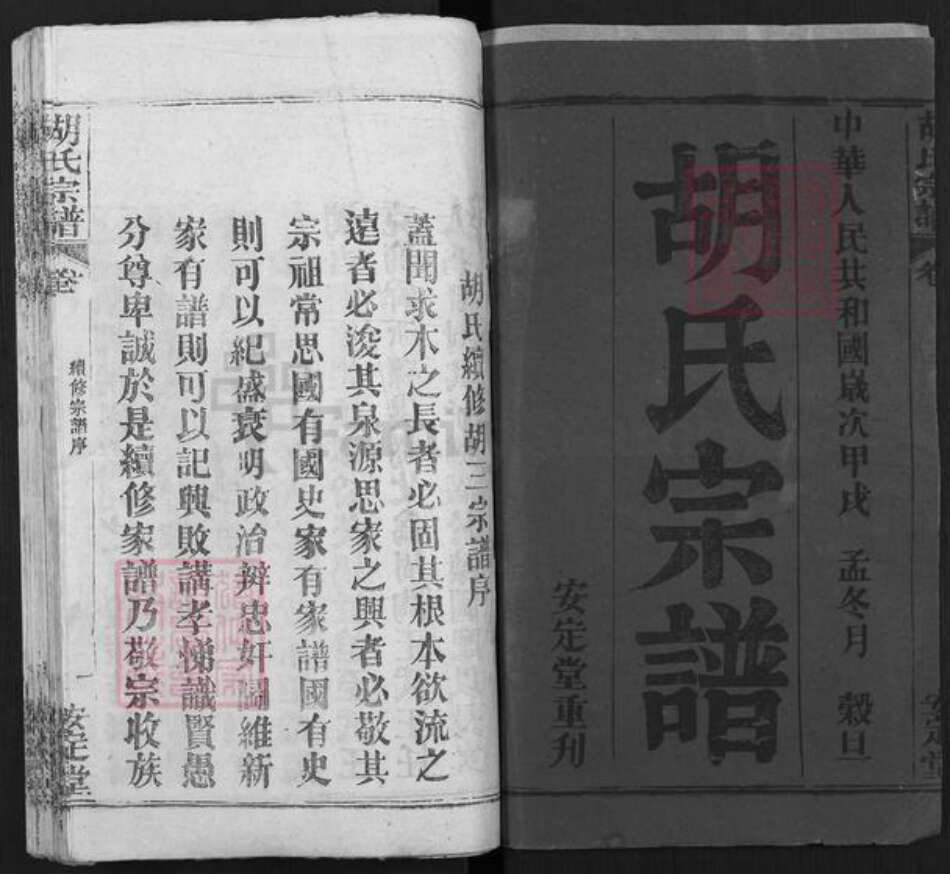 中華人民共和國嵗次甲戌 孟冬月 榖旦
胡氏宗譜
安定堂重刋
胡氏續修胡三宗譜序
蓋聞求木之長者必固其根本欲流之
遠者必浚其泉源思家之興者必敬其
宗祖常思國有國史家有家譜國有史
則可以紀盛衰明政治辨忠奸闢維新
家有譜則可以記興敗講孝悌識賢愚
分尊卑誠於是續修家譜乃敬宗收族
胡氏宗譜
卷
續修宗譜序
一
安定堂